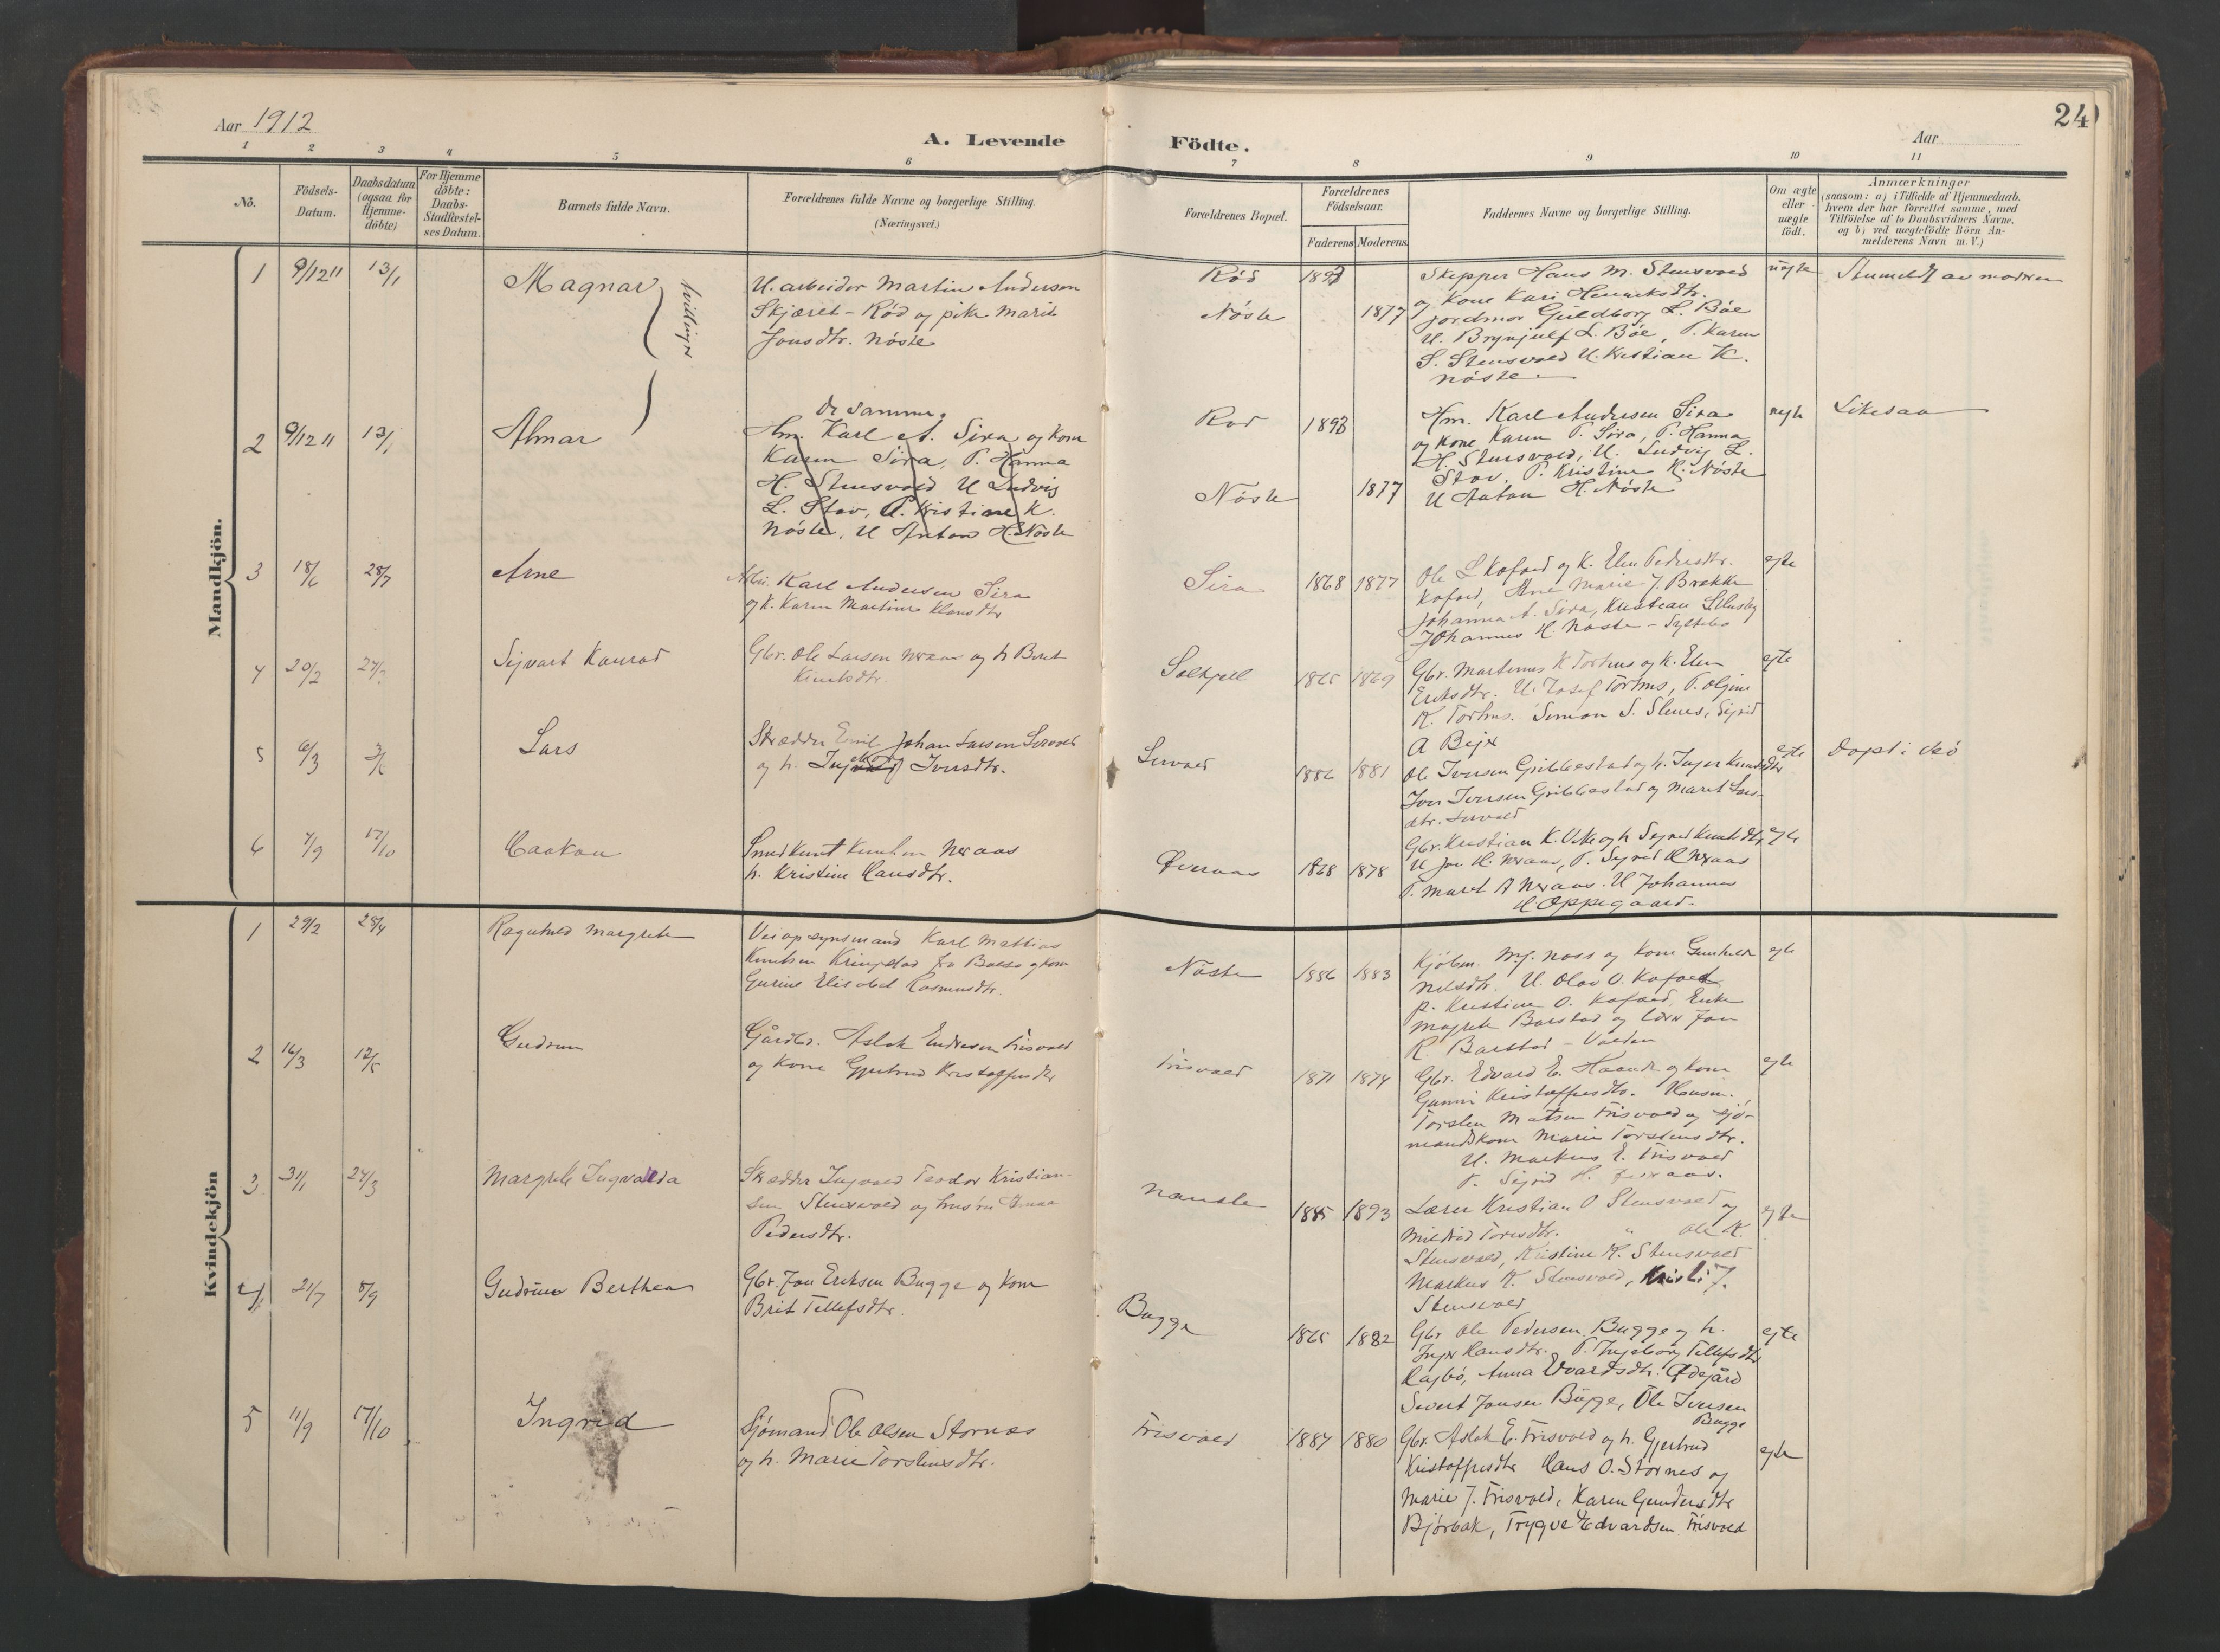 24
Aar 1912
A. Levende Födte.
Aar
1 2 3 4 5 6 7 8 9 10 11
No.
Födsels-
Datum.
Daabsdatum
(ogsaa for
Hjemme-
döbte)
For Hjemme
döbte:
Daabs-
Stadfæstel-
ses Datum.
Barnets fulde Navn.
Forældrenes fulde Navne og borgerlige Stilling.
(Næringsvei.)
Forældrenes Bopæl.
Forældrenes
Födselsaar.
Faderens Moderens
Faddernes Navne og borgerlige Stilling.
Om ægte
eller
uægte
födt.
Anmærkninger
(saasom: a) i Tilfælde af Hjemmedaab,
hvem der har forrettet samme, med
Tilföielse af to Daabsvidners Navne.
og b) ved uægtefödte Börn An-
melderens Navn m. V.)
Mandkjön.
1 9/12 11 13/1
Magnar
tvillinger
U. arbeider Martin Anderson
Skjæret - Rød og pike Marit
Jonsdtr. Nøste
Rød 1893
Nøste 1877
Skipper Hans M. Stensvold
og Kone Kari Henriksdtr.
jordmor Guldborg L. Böe
U. Brynjulf L. Böe, P. Karen
S. Stensvold U. Kristian K.
Nøste.
uegte
Anmeldt av modren
2 9/12 11 13/1
Almar
de samme.
Hm. Karl A. Sira og Kone
Karen Sira, P. Hanna
H. Stensvold U Ludvig
L. Stov, P. Kristine K.
Nøste, U Anton H. Nøste
Rød 1893
Nøste 1877
Hm. Karl Andersen Sira
og Kone Karen P. Sira, P. Hanna
H. Stensvold, U. Ludvig L.
Stov, P. Kristine K. Nøste
U Anton H. Nøste
uegte
Likesaa
3 18/6 28/7
Arne
Arb. Karl Andersen Sira
og K. Karen Martine Klausdtr
Sira 1868 1877
Ole L Kofoed og K. Elen Pedersdtr.
Kofoed, Ane Marie J. Brekke
Johanna A. Sira, Kristian
Johannes H. Nøste -
egte
4 20/2
Sigvart Konrad
Gbr. Ole Larsen Neraas og h Beret
Knutsdtr.
Solkjell 1865 1869
Gbr. Martinus K Torhus og K. Elen
Eriksdtr. U. Josef Torhus, P. Olgine
K. Torhus. Simon S. Stenes, Sigrid
A Beje
egte
5 6/3
Lars
Skrædder Emil Johan Larsen Sørvold
og h. Ingeborg Iversdtr.
Sørvold 1886 1881
Ole Iversen Gribbestad og h. Inger Knudsdtr
Iver Iversen Gribbestad og Maret Lars-
dtr. Sørvold
egte
Döpt i Bö
6 7/9 17/10
Haakon
Smed Knut Knutsen Neraas
h. Kristine Hansdtr.
Øveraas 1868 1878
Gbr. Kristian K. Utke og h Sigrid Knutsdtr
U Jon H. Neraas, P. Sigrid K Neraas
P. Maret A Neraas. U Johannes
H Oppegaard.
egte
Kvindekjön
1 29/2 28/4
Ragnhild Margrete
Veiopsynsmand Karl Mattias
Knutsen Kringstad fra Bolsø og kone
Gurine Elisabet Rasmusdtr.
Nøste 1886 1883
Kjöbm. M. J. Moss og Kone Gunhild
Nilsdtr. U. Olav O. Kofoed
P. Kristine O. Kofoed, Enke
Magrete Barstad og lærer Jon
R. Barstad - Volden
egte
2 16/3 12/5
Gudrun
Gårdbr. Aslak Endresen Frisvold
og Kone Gjertrud Kristoffersdtr
Frisvold 1871 1874
Gbr. Edvard E. Haandr og Kone
Gunni Kristoffersdtr. Husm.
Torsten Matsen Frisvold og Sjø-
mandskone Marie Torstensdtr.
U. Markus E. Frisvold
P. Sigrid H. Øveraas.
egte
3 31/1 24/3
Margrete Ingvalda
Skrædder Ingvald Teodor Kristian-
sen Stensvold og hustru Anna
Pedersdtr.
Nauste 1885 1893
Lærer Kristian O Stensvold og
Mildrid Toresdtr. " Ole K.
Stensvold, Kristine K. Stensvold
Markus K. Stensvold, Kristi J.
Stensvold
egte
4 21/7 8/9
Gudrun Berthea
Gbr. Jon Eriksen Bugge og kone
Brit Tellefsdtr.
Bugge 1865 1882
Gbr Ole Pedersen Bugge og h.
Inger Hansdtr. P. Ingeborg Tellefsdtr
Hagbö, Anna Edvardsdtr. Ødegård
Sivert Jonsen Bugge, Ole Iversen
Bugge
egte
5 11/9 17/10
Ingrid
Sjømand Ole Olsen Stornes
og h. Marie Torstensdtr.
Frisvold 1887 1880
Gbr. Aslak E. Frisvold og h. Gjertrud
Kristoffersdtr Hans O. Stornes og
Marie J. Frisvold, Karen Gundersdtr
Bjørbak, Trygve Edvardsen Frisvold
egte